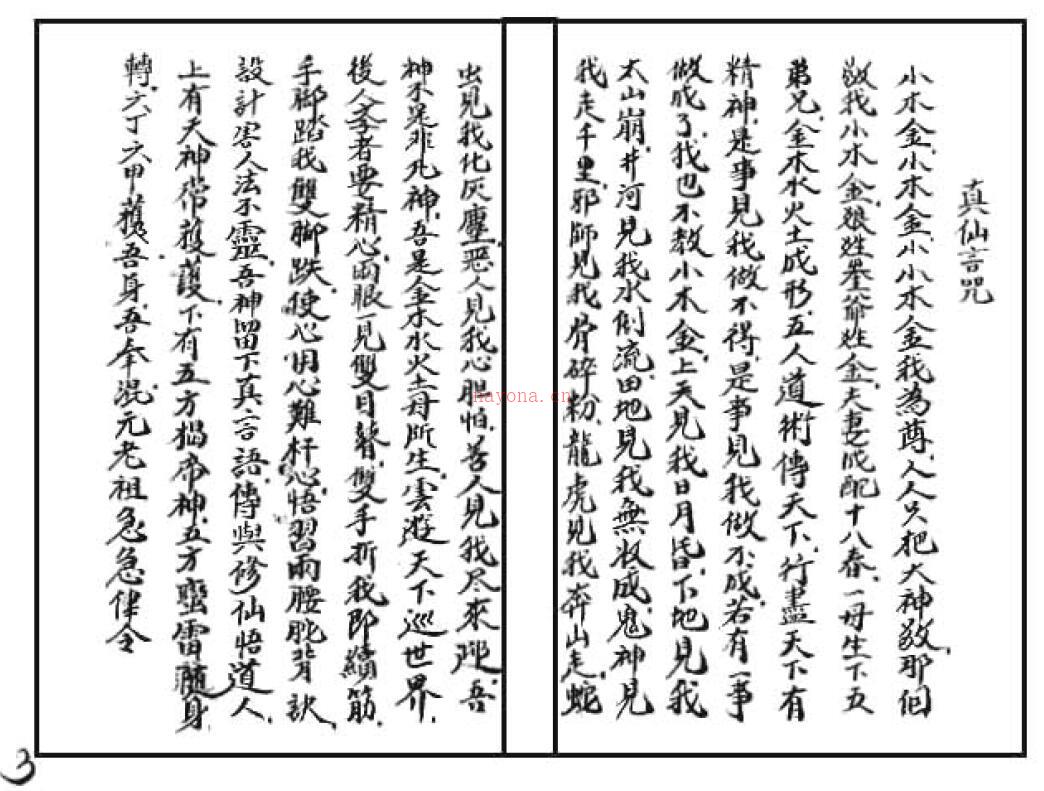 真仙言咒
小木金、小木金、小小木金我為尊、人人只把大神敬、那個
敬我小木金、娘姓 爺姓金、夫妻成配十八春、一母生下五
弟兄、金木水火土成形、五人道術傳天下、行盡天下有
精神、是事見我做不得、是事見我做不成、若有一事
做成了、我也不教小木金、上天見我日月昏、下地見我
太山崩、井河見我水倒流、田地見我無收成、鬼神見
我走千里、邪師見我骨碎粉、龍虎見我奔山走、蛇
虫見我化灰塵、惡人見我心胆怕、善人見我尽來迎、吾
神不是非凡神、吾是金木水火土母所生、雲遊天下巡世界、
後人 者要精心、兩眼一見雙目瞽、雙手折我即續筋、
手脚踏我雙脚跌、使心用心、難杆心、悟習兩腰 背訣、
設計害人法不靈、吾神留下真言語、傳與修仙悟道人、
上有天神常 護、下有五方揭帝神、五方蛮雷随身
轉、六丁六甲護吾身、吾奉混元老祖急急律令
3
hayona.cn